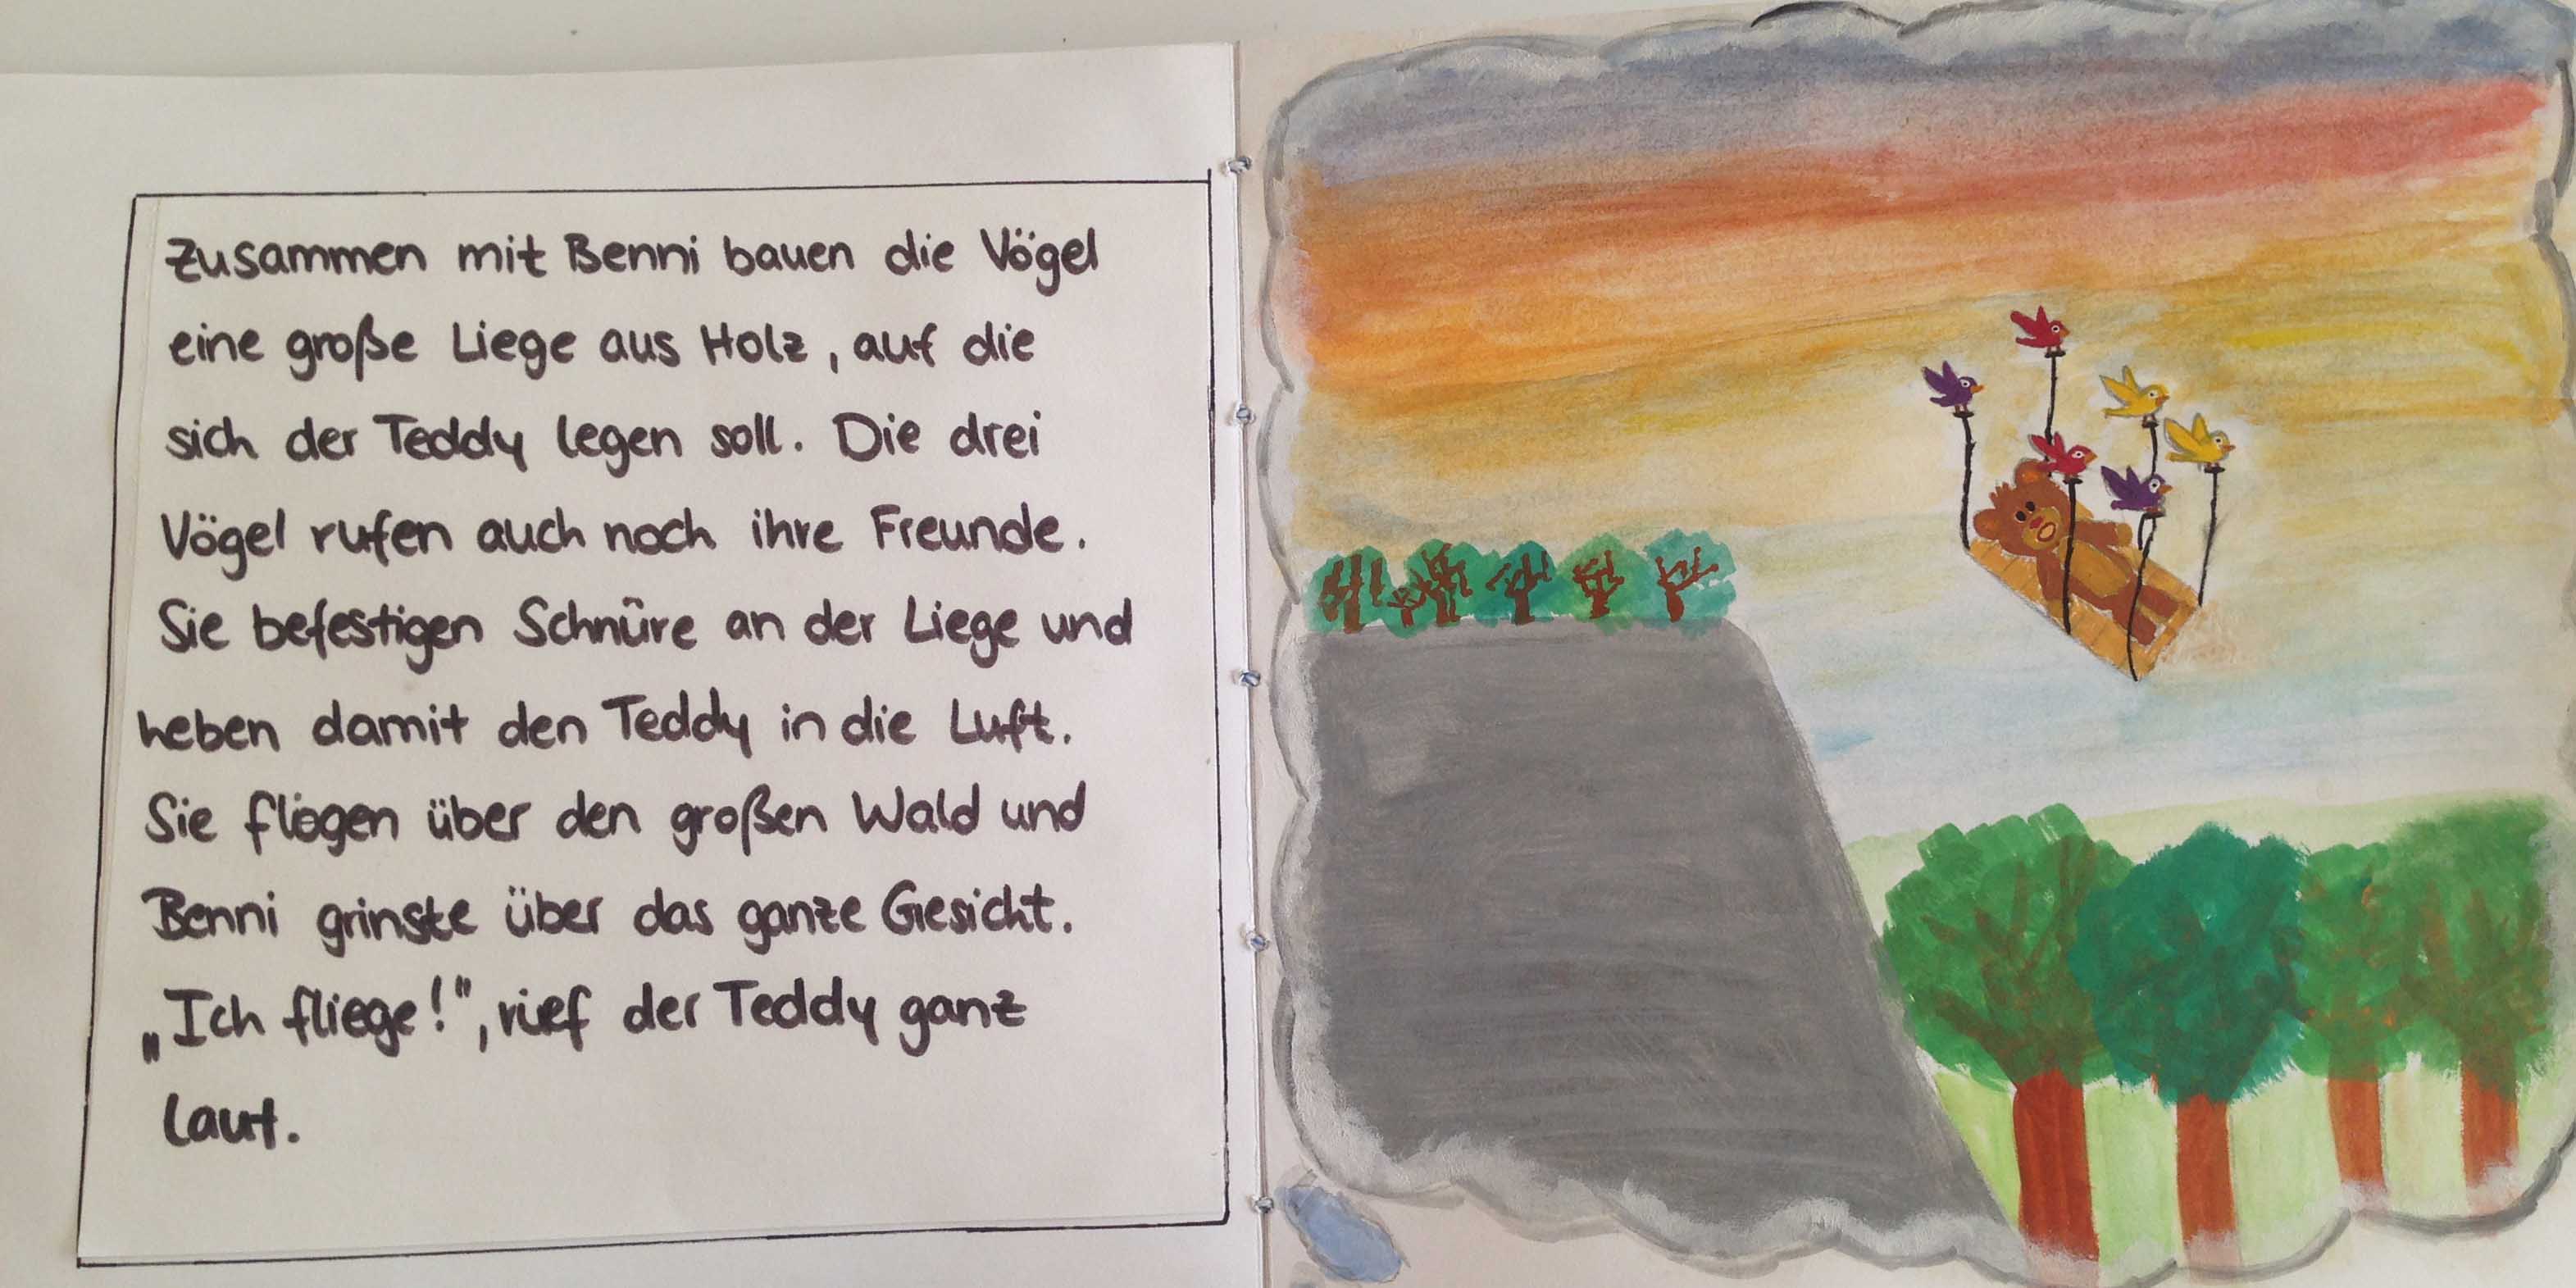 Zusammen mit Benni bauen die Vögel
eine große Liege aus Holz, auf die
sich der Teddy legen soll. Die drei
Vögel rufen auch noch ihre Freunde.
Sie befestigen Schnüre an der Liege und
heben damit den Teddy in die Luft.
Sie flogen über den großen Wald und
Benni grinste über das ganze Gesicht.
„Ich fliege!", rief der Teddy ganz
laut.